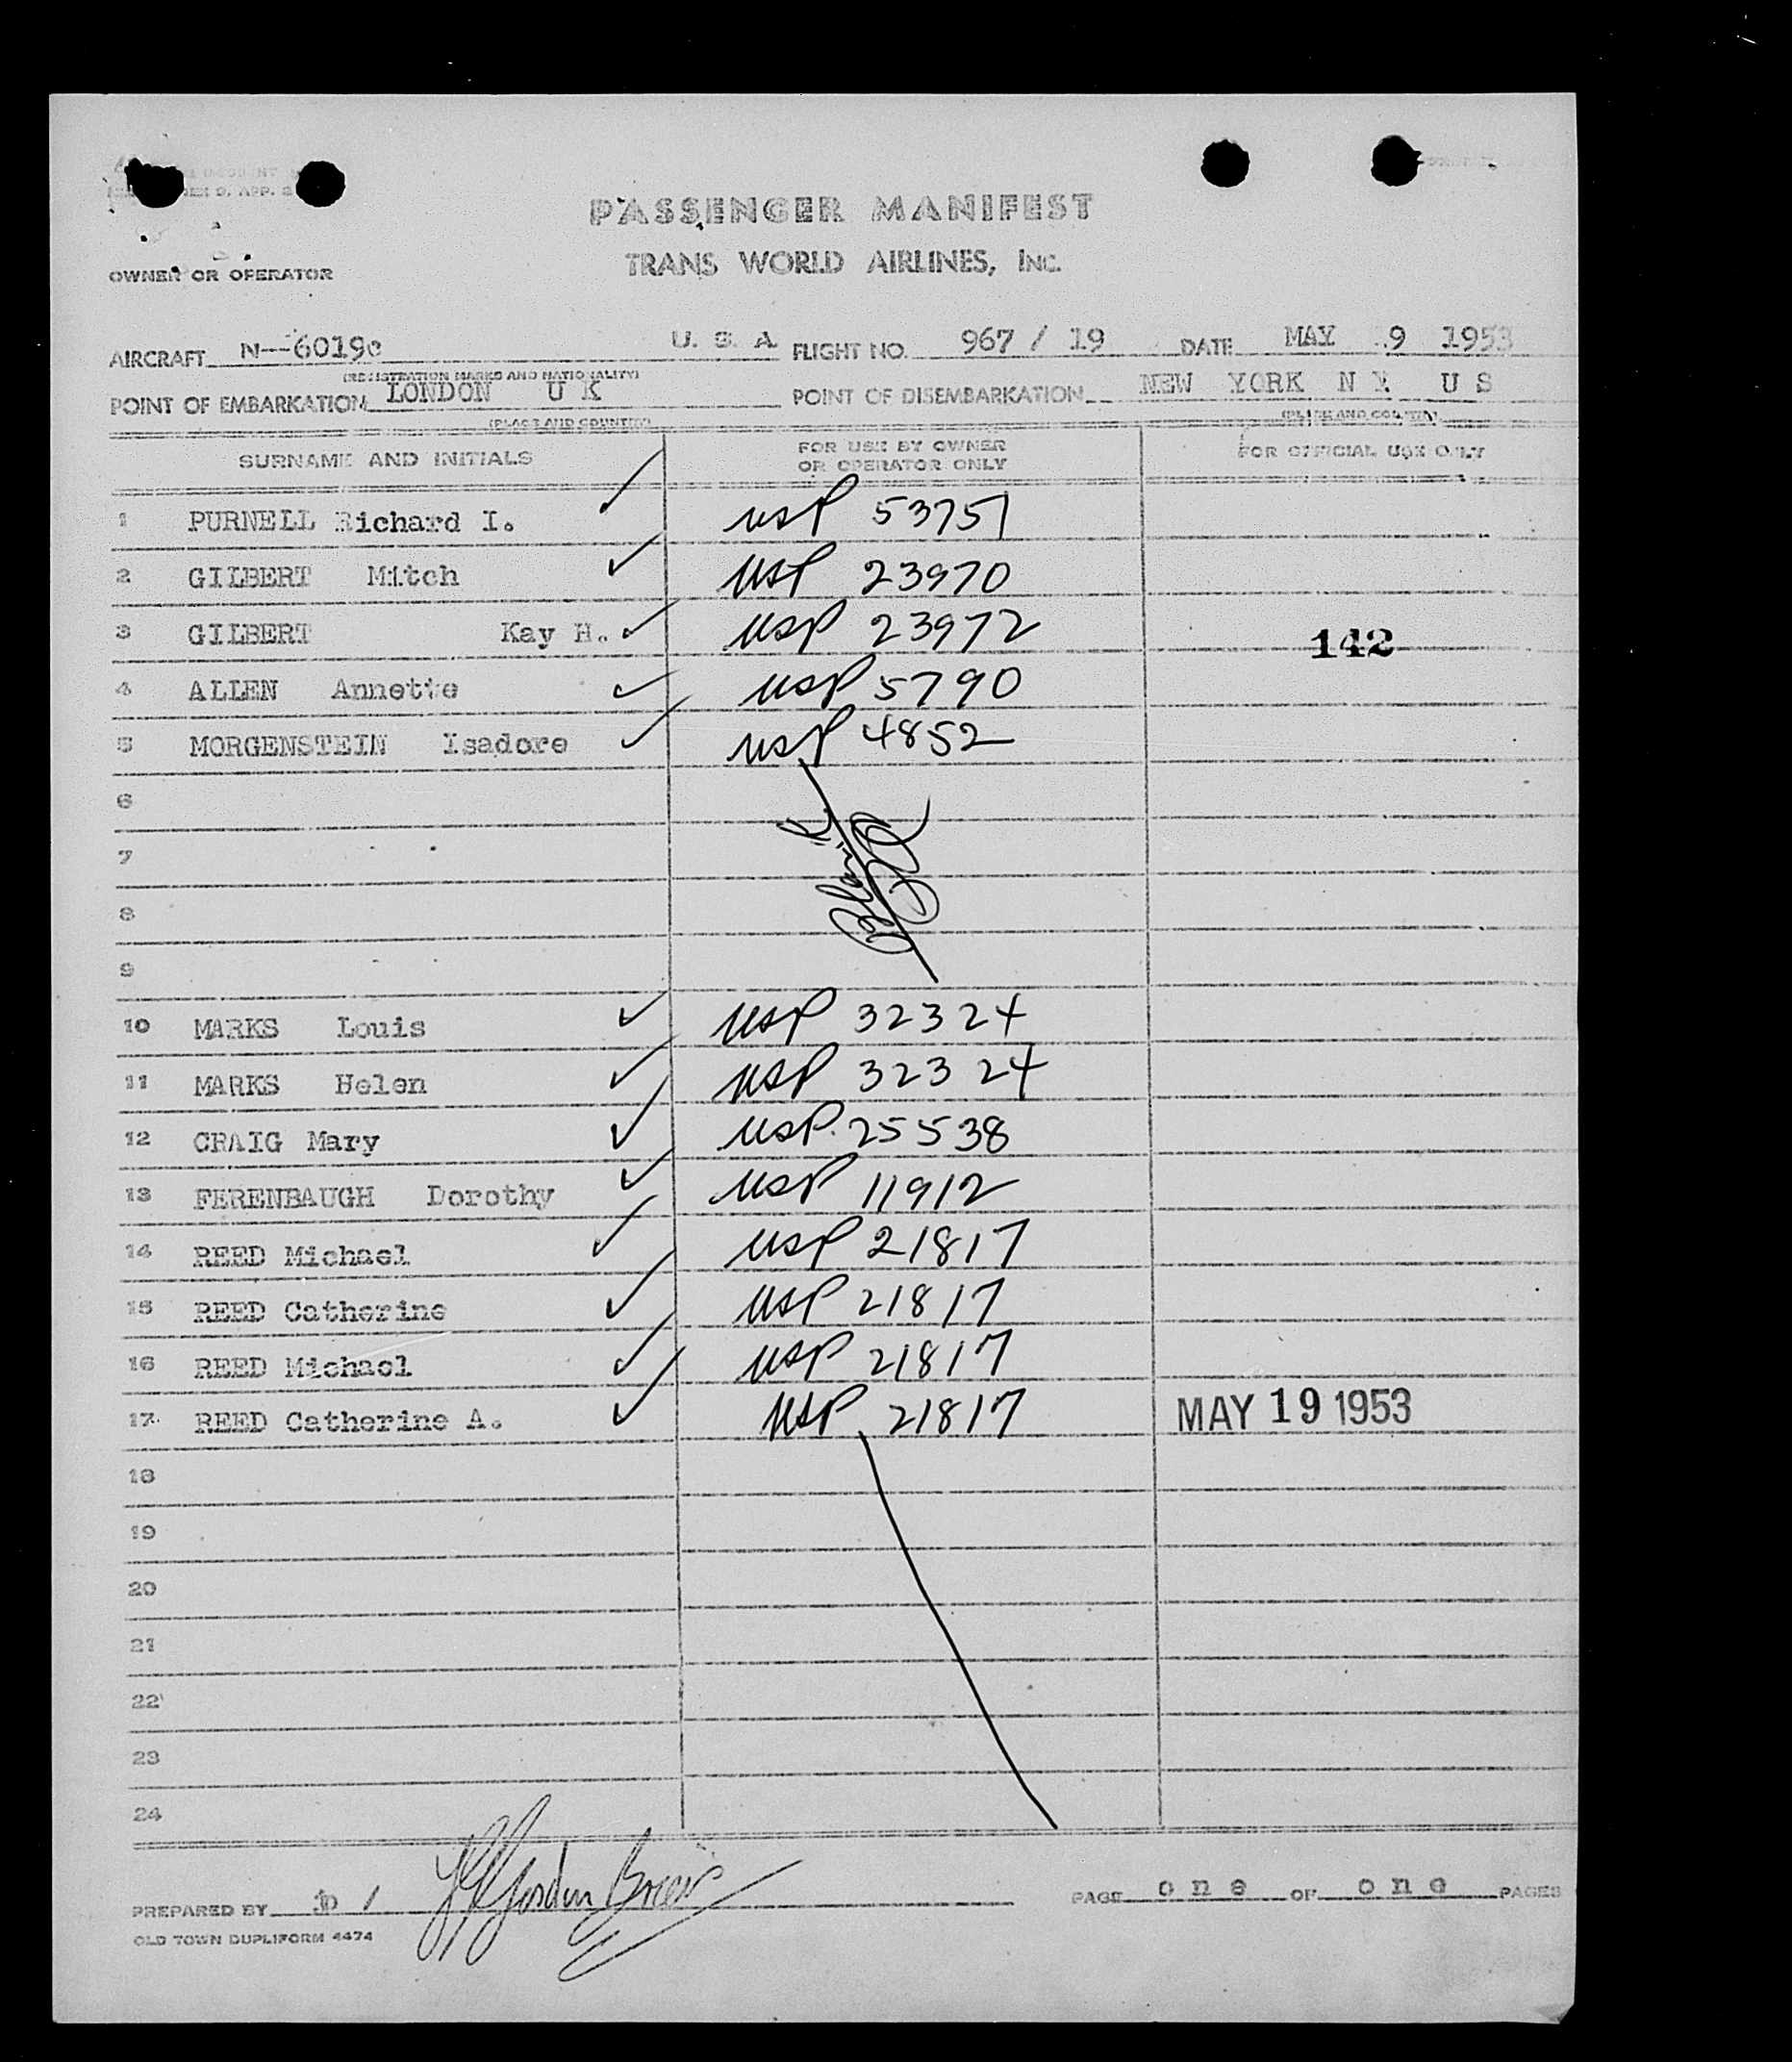 PASSENGER MANIFEST
TRANS WORLD AIRLINES, INC.
OWNER OR OPERATOR
AIRCRAFT N--6019c U. S. A. FLIGHT NO. 967 / 19 DATE MAY 9 1953
(REGISTRATION MARKS AND NATIONALITY)
POINT OF EMBARKATION LONDON U K POINT OF DISEMBARKATION NEW YORK N Y U S
(PLACE AND COUNTRY) (PLACE AND COUNTRY)
SURNAME AND INITIALS FOR USE BY OWNER OR OPERATOR ONLY FOR OFFICIAL USE ONLY
1 PURNELL Richard I. ✓ USP 53751
2 GILBERT Mitch ✓ USP 23970
3 GILBERT Kay H. ✓ USP 23972
142
4 ALLEN Annette ✓ USP 5790
5 MORGENSTEIN Isadore ✓ USP 4852
6
7
8
9
10 MARKS Louis ✓ USP 32324
11 MARKS Helen ✓ USP 32324
12 CRAIG Mary ✓ USP. 25538
13 FERENBAUGH Dorothy ✓ USP 11912
14 REED Michael ✓ USP 21817
15 REED Catherine ✓ USP 21817
16 REED Michael ✓ USP 21817
17 REED Catherine A. ✓ USP 21817 MAY 19 1953
18
19
20
21
22
23
24
PREPARED BY Gordon PAGE one OF one PAGES
OLD TOWN DUPLIFORM 4474